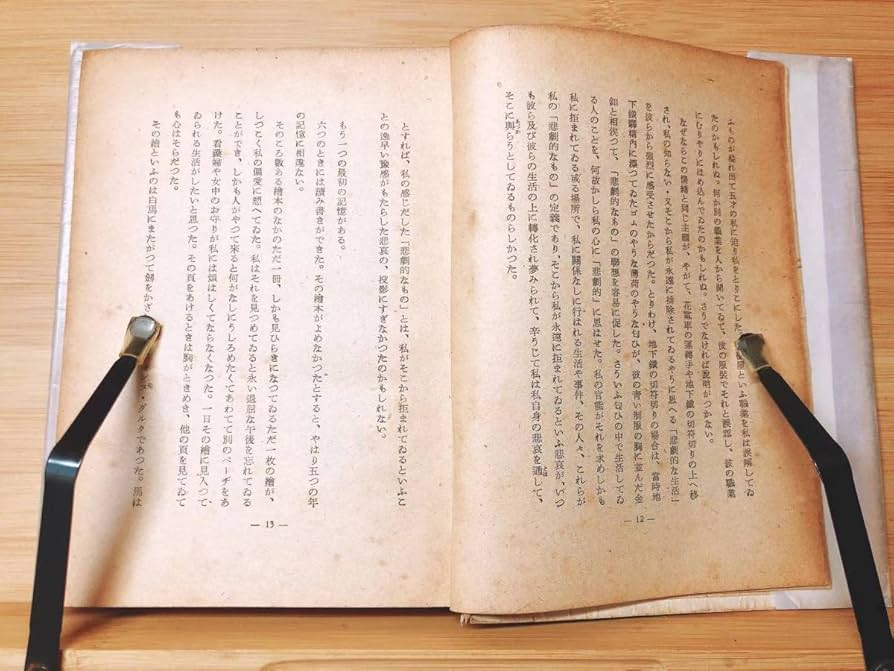 ふものが溢れ出て五才の私に迫り私をとりこにした
屋といふ職業を私は誤解してゐ
たのかもしれぬ。何か別の職業を人から聞いてゐて、彼の服装でそれと誤認し、彼の職業
にむりやりにはめ込んでゐたのかもしれぬ。さうでなければ説明がつかない。
なぜならこの情緒と同じ主題が、やがて、花電車の運轉手や地下鐵の切符切りの上へ移
され、私の知らない・又そこから私が永遠に排除されてゐるやうに思へる「悲劇的な生活」
を彼らから强烈に感受させたからだつた。とりわけ、地下鐵の切符切りの場合は、當時地
下鐵驛構内に漂つてゐたゴムのやうな薄荷のやうな匂ひが、彼の青い制服の胸に並んだ金
釦と相俟つて、「悲劇的なもの」の聯想を容易に促した。さういふ匂ひの中で生活してゐ
る人のことを、何故かしら私の心に「悲劇的」に思はせた。私の官能がそれを求めしかも
私に拒まれてゐる或る場所で、私に關係なしに行はれる生活や事件、その人々、これらが
私の「悲劇的なもの」の定義であり、そこから私が永遠に拒まれてゐるといふ悲哀が、いつ
も彼ら及び彼らの生活の上に轉化され夢みられて、辛うじて私は私自身の悲哀を通して、
そこに與らうとしてゐるものらしかつた。
— 12 —
とすれば、私の感じだした「悲劇的なもの」とは、私がそこから拒まれてゐるといふこ
との逸早い豫感がもたらした悲哀の、投影にすぎなかつたのかもしれない。
もう一つの最初の記憶がある。
六つのときには讀み書きができた。その繪本がよめなかつたとすると、やはり五つの年
の記憶に相違ない。
そのころ數ある繪本のなかのただ一冊、しかも見ひらきになつてゐるただ一枚の繪が、
しつこく私の偏愛に愬へてゐた。私はそれを見つめてゐると永い退屈な午後を忘れてゐる
ことができ、しかも人がやつて來ると何がなしにうしろめたくてあわてて別のページをあ
けた。看護婦や女中のお守りが私には煩はしくてならなくなつた。一日その繪に見入つて
ゐられる生活がしたいと思つた。その頁をあけるときは胸がときめき、他の頁を見てゐて
も心はそらだつた。
その繪といふのは白馬にまたがつて劍をかざ
ダルクであつた。馬は
— 13 —